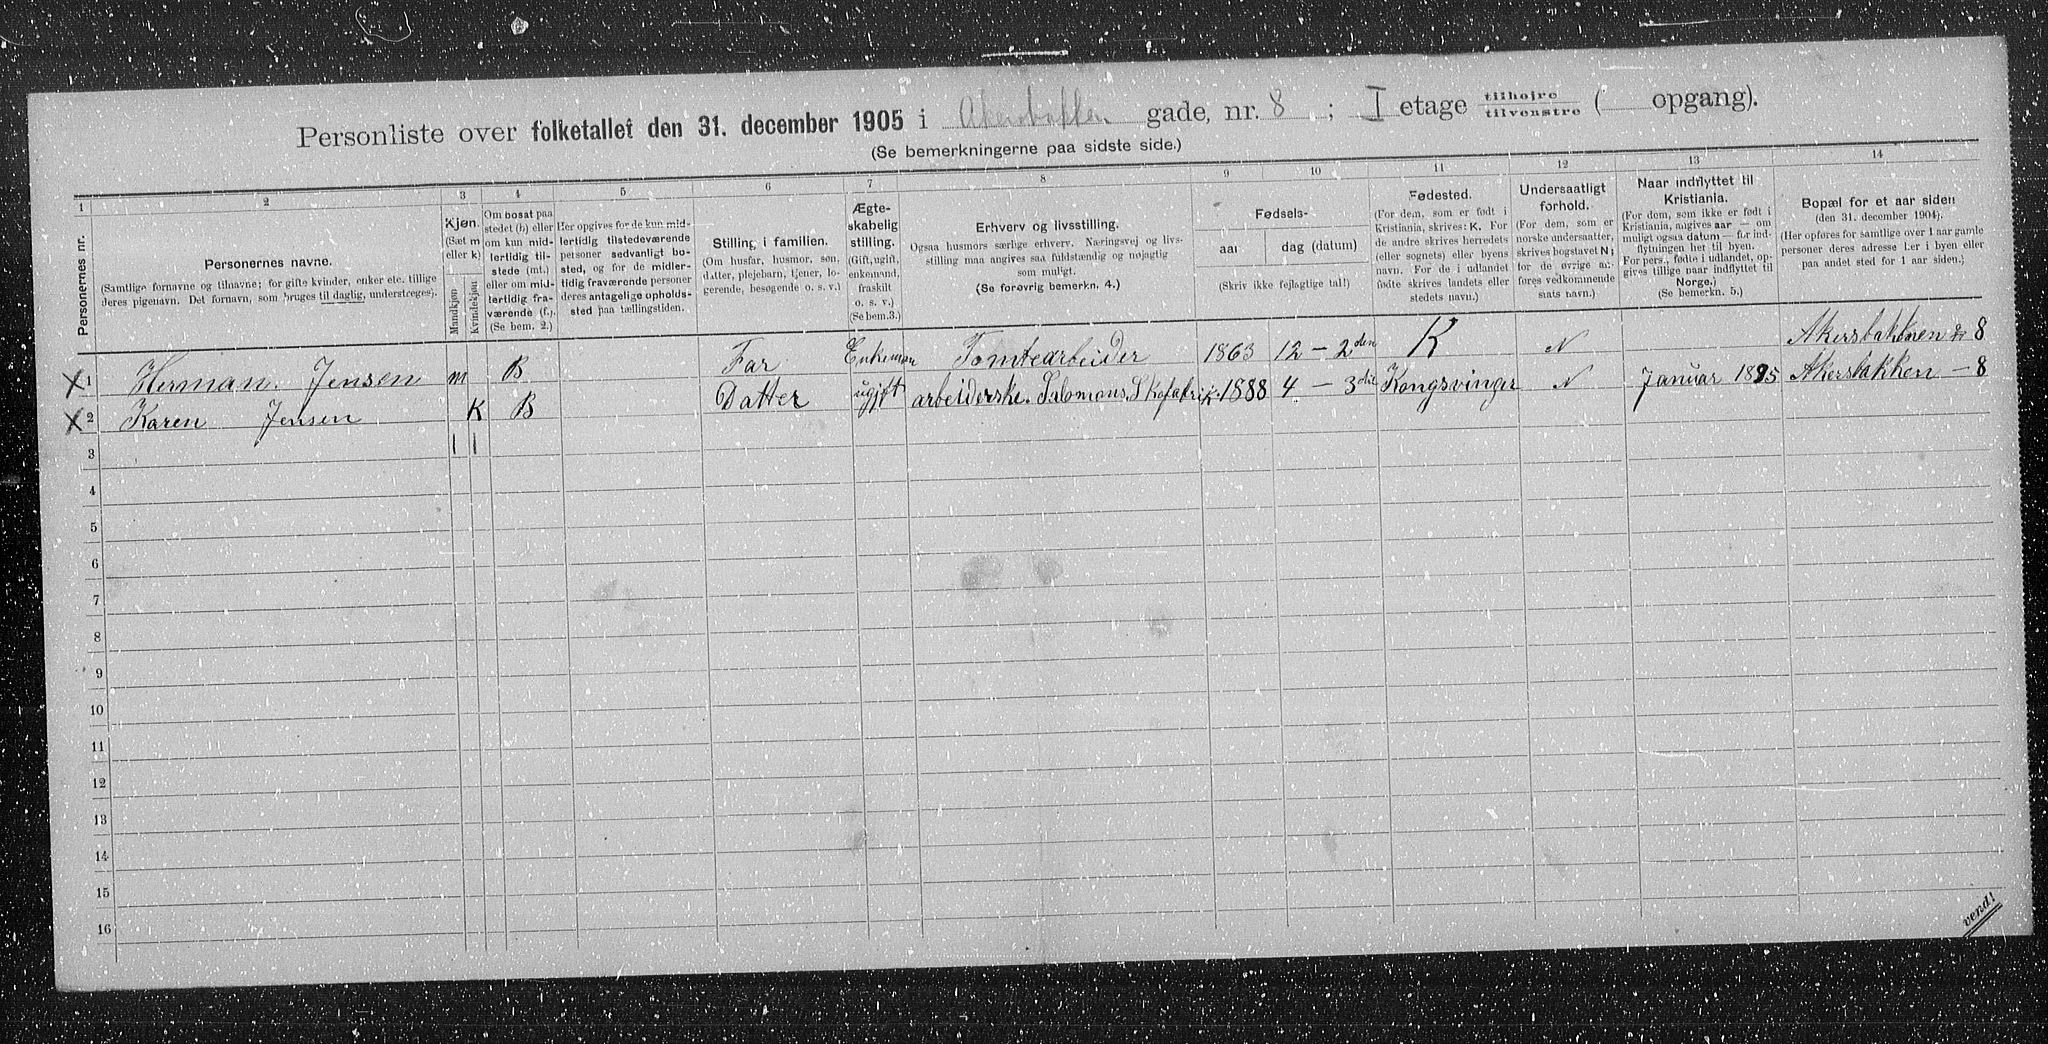 Personliste over folketallet den 31. december 1905 i Akersbakken gade, nr. 8 ; I etage tilhøjre / tilvenstre ( opgang).
(Se bemerkningerne paa sidste side.)
1 2 3 4 5 6 7 8 9 10 11 12 13 14
Personernes nr.
Personernes navne.
(Samtlige fornavne og tilnavne; for gifte kvinder, enker etc. tillige
deres pigenavn. Det fornavn, som bruges til daglig, understreges).
Kjøn.
(Sæt m
eller k)
Mandkjøn
Kvindekjøn
Om bosat paa
stedet (b) eller
om kun mid-
lertidig til-
stede (mt.)
eller om mid-
lertidig fra-
værende (f.).
(Se bem. 2.)
Her opgives for de kun mid-
lertidig tilstedeværende
personer sedvanligt bo-
sted, og for de midler-
tidig fraværende personer
deres antagelige opholds-
sted paa tællingstiden.
Stilling i familien.
(Om husfar, husmor, søn,
datter, plejebarn, tjener, lo-
gerende, besøgende o. s. v.)
Ægte-
skabelig
stilling.
(Gift, ugift,
enkemand,
fraskilt
o. s. v.)
(Se bem.3.)
Erhverv og livsstilling.
Ogsaa husmors særlige erhverv. Næringsvej og livs-
stilling maa angives saa fuldstændig og nøjagtig
som muligt.
(Se forøvrig bemerkn. 4.)
Fødsels-
aar
dag (datum)
(Skriv ikke fejlagtige tal!)
Fødested.
(For dem, som er født i
Kristiania, skrives: K. For
de andre skrives herredets
(eller sognets) eller byens
navn. For de i udlandet
fødte skrives landets eller
stedets navn.)
Undersaatligt
forhold.
(For dem, som er
norske undersaatter,
skrives bogstavet N;
for de øvrige an-
føres vedkommende
stats navn.)
Naar indflyttet til
Kristiania.
(For dem, som ikke er født i
Kristiania, angives aar — om
muligt ogsaa datum — for ind-
flytningen her til byen.
For pers., fødte i udlandet, op-
gives tillige naar indflyttet til
Norge.)
(Se bemerkn. 5.)
Bopæl for et aar siden
(den 31. december 1904).
(Her opføres for samtlige over 1 aar gamle
personer deres adresse her i byen eller
paa andet sted for 1 aar siden.)
X 1 Herman. Jensen m B Far Enkeman Tomtearbeider 1863 12 - 2den K N Akersbakkenen 8
X 2 Karen Jensen K B Datter ugift arbeiderske. Salomons Skofabrik. 1888 4 - 3die Kongsvinger N Januar 1895 Akersbakken - 8
3 | |
4
5
6
7
8
9
10
11
12
13
14
15
16
vend!